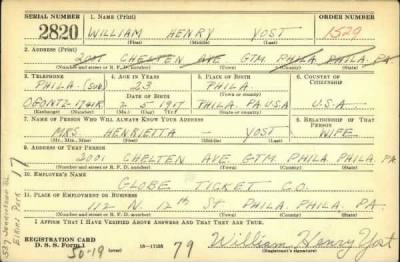 SERIAL NUMBER 1. NAME (Print) ORDER NUMBER
2820 WILLIAM HENRY YOST 1529
(First) (Middle) (Last)
2. ADDRESS (Print)
2001 CHELTEN AVE GTM. PHILA. PHILA. PA
(Number and street or R. F. D. number) (Town) (County) (State)
3. TELEPHONE 4. AGE IN YEARS 5. PLACE OF BIRTH 6. COUNTRY OF CITIZENSHIP
PHILA. (SUB) 23 PHILA.
DATE OF BIRTH (Town or county)
OGONTZ 2 5 1917 PHILA. PA USA U.S.A.
(Exchange) (Number) (Mo.) (Day) (Yr.) (State or country)
7. NAME OF PERSON WHO WILL ALWAYS KNOW YOUR ADDRESS 8. RELATIONSHIP OF THAT PERSON
MRS. HENRIETTA - YOST WIFE
(Mr., Mrs., Miss) (First) (Middle) (Last)
9. ADDRESS OF THAT PERSON
2001 CHELTEN AVE. GTM. PHILA. PHILA. PA
(Number and street or R. F. D. number) (Town) (County) (State)
10. EMPLOYER'S NAME
GLOBE TICKET CO.
11. PLACE OF EMPLOYMENT OR BUSINESS
112 N. 12th St PHILA. PHILA. PA.
(Number and street or R. F. D. number) (Town) (County) (State)
I AFFIRM THAT I HAVE VERIFIED ABOVE ANSWERS AND THAT THEY ARE TRUE.
REGISTRATION CARD
D. S. S. Form 1 79 William Henry Yost
30-19 (Registrant's signature)
Elkins Park